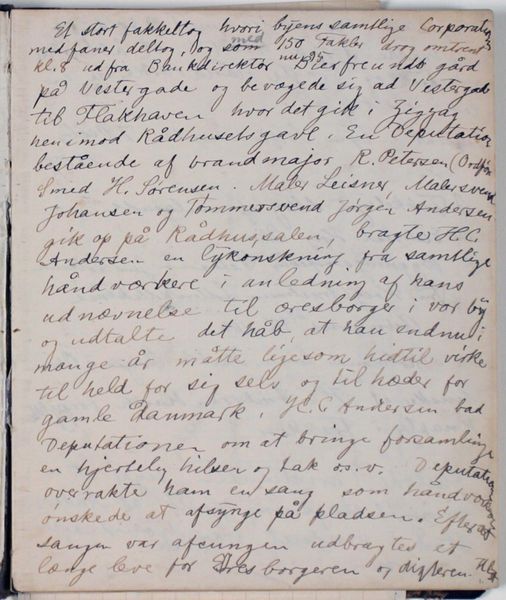 Et stort fakkeltog hvori byens samtlige Corporationer
med faner deltog, og som med 150 Fakler drog omtrent
kl. 8 ud fra Bankdirektør Dierfreundts gård
på Vestergade og bevægede sig ad Vestergade
til Flakhaven hvor det gik i Zigzag
hen imod Rådhusets gavl. En Deputation
bestående af brandmajor R. Petersen (Ordfører
Smed H. Sørensen. Maler Leisner, Malersvend
Johansen og Tømmersvend Jørgen Andersen
gik op på Rådhussalen, bragte H.C.
Andersen en lykønskning fra samtlige
håndværkere i anledning af hans
udnævnelse til æresborger i vor by
og udtalte det håb, at han endnu i
mange år måtte ligesom hidtil virke
til held for sig selv og til hæder for
gamle Danmark. H.C Andersen bad
Deputationen om at bringe forsamlingen
en hjertelig hilsen og tak os.v. Deputationen
overrakte ham en sang som håndværkerne
ønskede at afsynge på pladsen. Efter at
sangen var afsungen udbragtes et
længe leve for Æresborgeren og digteren.